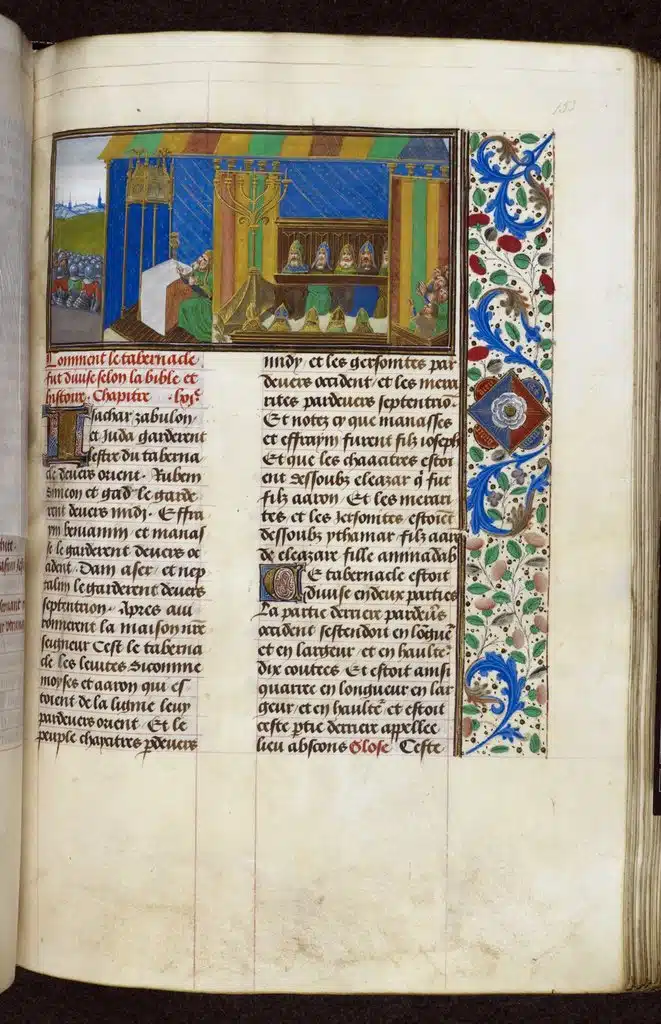 Comment le tabernacle
fut diuise selon la bible et
histoire. Chapitre .lvi.
Isachar zabulon
et Juda garderent
lestre du taberna
cle deuers orient. Rubem
Simeon et gad le garde
rent deuers midi. Effra
ym beniamin et manas
se le garderent deuers oc
cident. Dam aser et nep
talin le garderent deuers
septentrion. Apres aui
ronnerent la maison nre
seigneur Cest le taberna
cle les leuites Sicomme
moyses et aaron qui es
toient de la lignie leuy
pardeuers orient. Et le
peuple chayitres pdeuers
midy. et les gersonites par
deuers occident et les mera
rites pardeuers septentrion.
Et notez cy que manasses
et effraym furent filz ioseph
Et que les chaacitres estoi
ent dessoubz eleazar q fut
filz aaron. Et les merari
tes et les Jersonites estoiēt
dessoubz ythamar filz aaron
de eleazare fille aminadab
Ce tabernacle estoit
diuise en deux parties
La partie derriere pardeūs
occident sestendoit en
et en largeur et en
dix coutees. Et estoit ainsi
quarree en longueur en lar
geur et en haulte. et estoit
ceste ptie derriere appellee
lieu abscons Glose Ceste